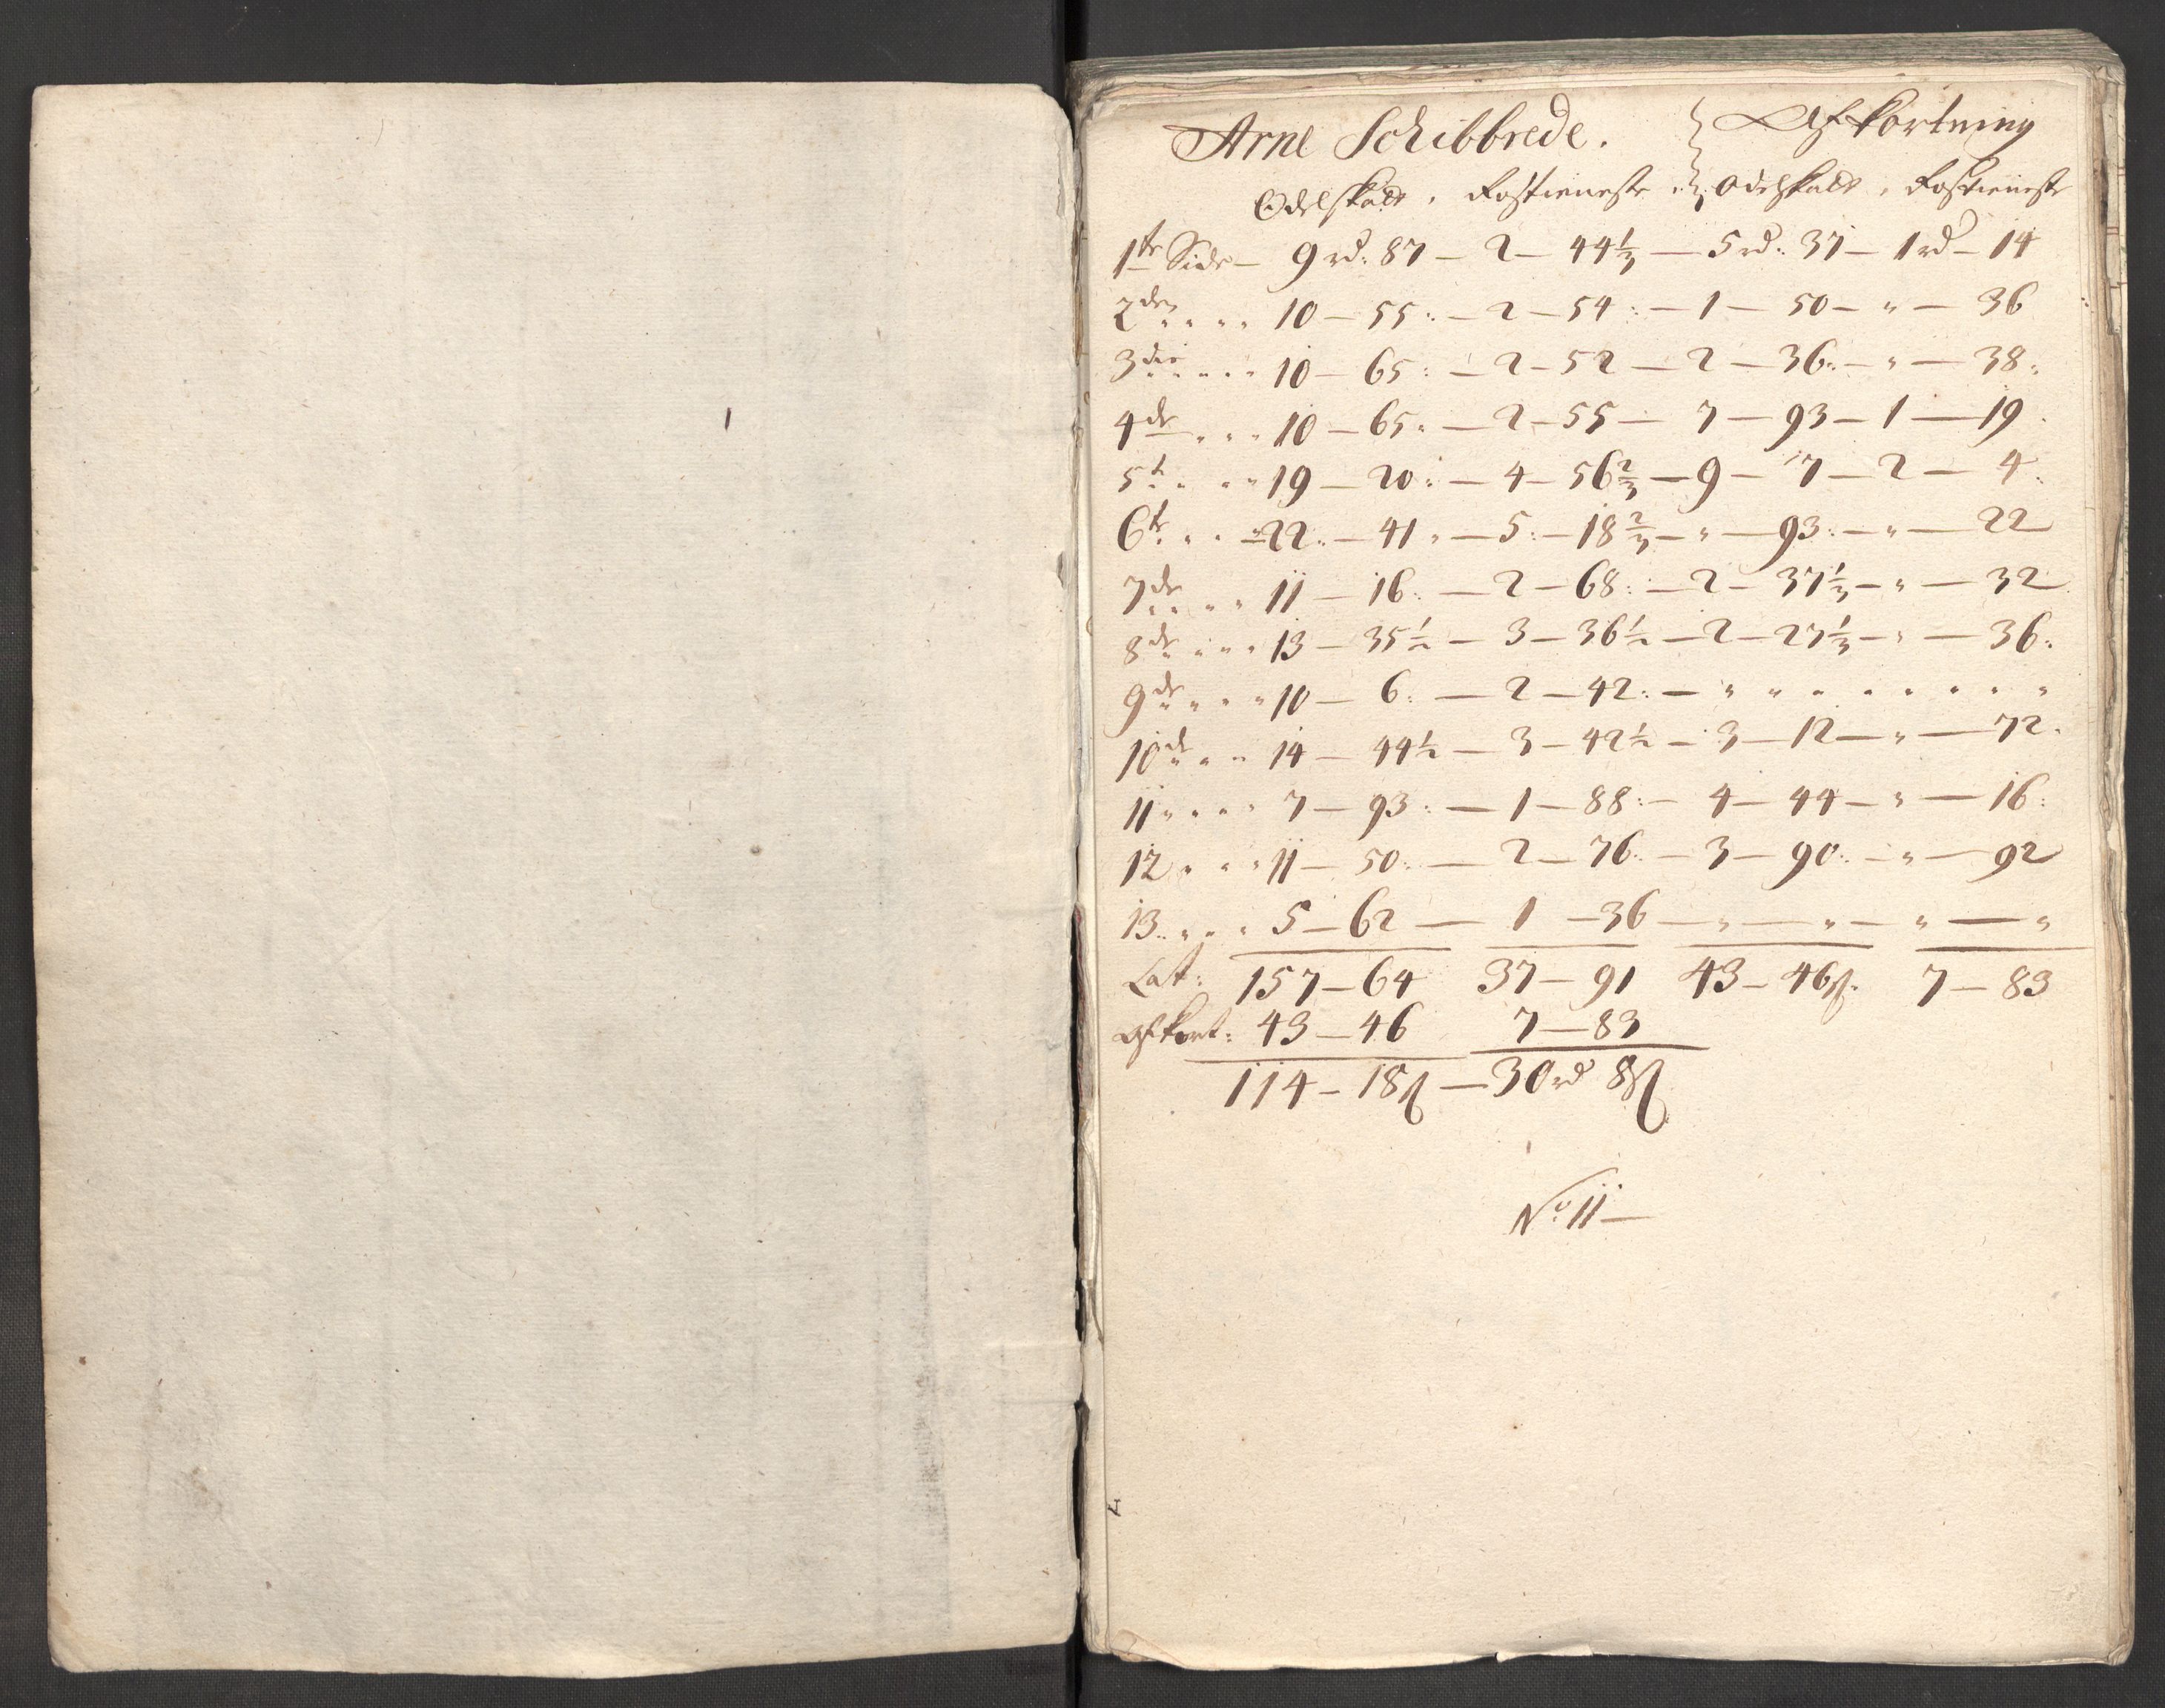 Arne Schibbrede. } Afkortning
Odelskatt . Rostieneste . } Odelskatt . Rostieneste
1te Side — 9 rd. 87 — 2 — 44 1/3 — 5 rd. 37 — 1 rd — 14
2den . . . . 10 — 55 : — 2 — 54 : — 1 — 50 — " — 36
3die . . . . 10 — 65 : — 2 — 52 — 2 — 36 : — " — 38 :
4de . . . 10 — 65 . — 2 — 55 — 7 — 93 — 1 — 19 .
5t . . . . 19 — 20 : — 4 — 56 2/3 — 9 — 7 — 2 — 4 .
6t . . . 22 . — 41 . — 5 : — 18 2/3 — " — 93 : — " — 22
7de . . . . 11 — 16 . — 2 — 68 : — 2 — 37 1/3 — " — 32
8de . . . . 13 — 35 1/2 — 3 — 36 1/2 — 2 — 27 1/3 — " — 36 .
9de . . . . 10 — 6 : — 2 — 42 : — " " . . . . . .
10de . . . 14 — 44 1/2 — 3 — 42 1/2 — 3 — 12 — " — 72 .
11 . . . . 7 — 93 : — 1 — 88 : — 4 — 44 — " — 16 :
12 . . . 11 — 50 : — 2 — 76 : — 3 — 90 : — " — 92
13 . . . . 5 — 62 — 1 — 36 — " — " — " — "
Lat : 157 — 64 37 — 91 43 — 46 ß . 7 — 83
Afkort : 43 — 46 7 — 83
114 — 18 ß — 30 rd 8 ß
No 11 —